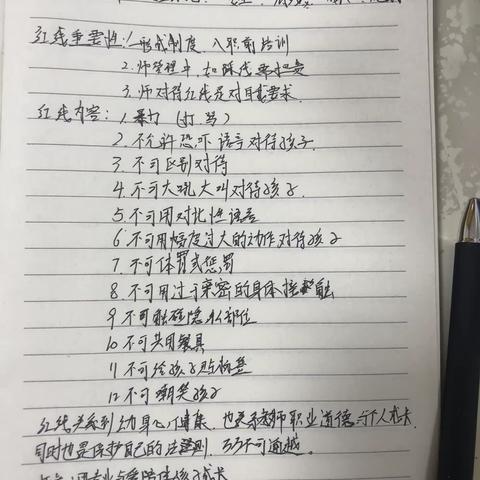 红线重要性:1.形成制度、入职前培训
2.师管理中,如踩线
3.师对待红线是对自我要求
红线内容:1.暴力(打.骂)
2.不允许恐吓语言对待孩子.
3.不可区别对待
4.不可大吼大叫对待孩子.
5.不可用对比性语言
6.不可用幅度过大的动作对待孩子
7.不可体罚或惩罚
8.不可用过于亲密的身体接触
9不可触碰隐私部位
10不可共用餐具
11不可给孩子贴标签
12不可嘲笑孩子
红线关系到幼身心健康,也关系教师职业道德与个人成长
同时也是保护自己的法则,不可逾越。